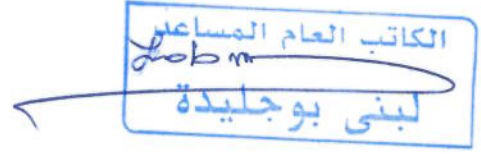 الكاتب العام المساعد
لبنى بوجليدة